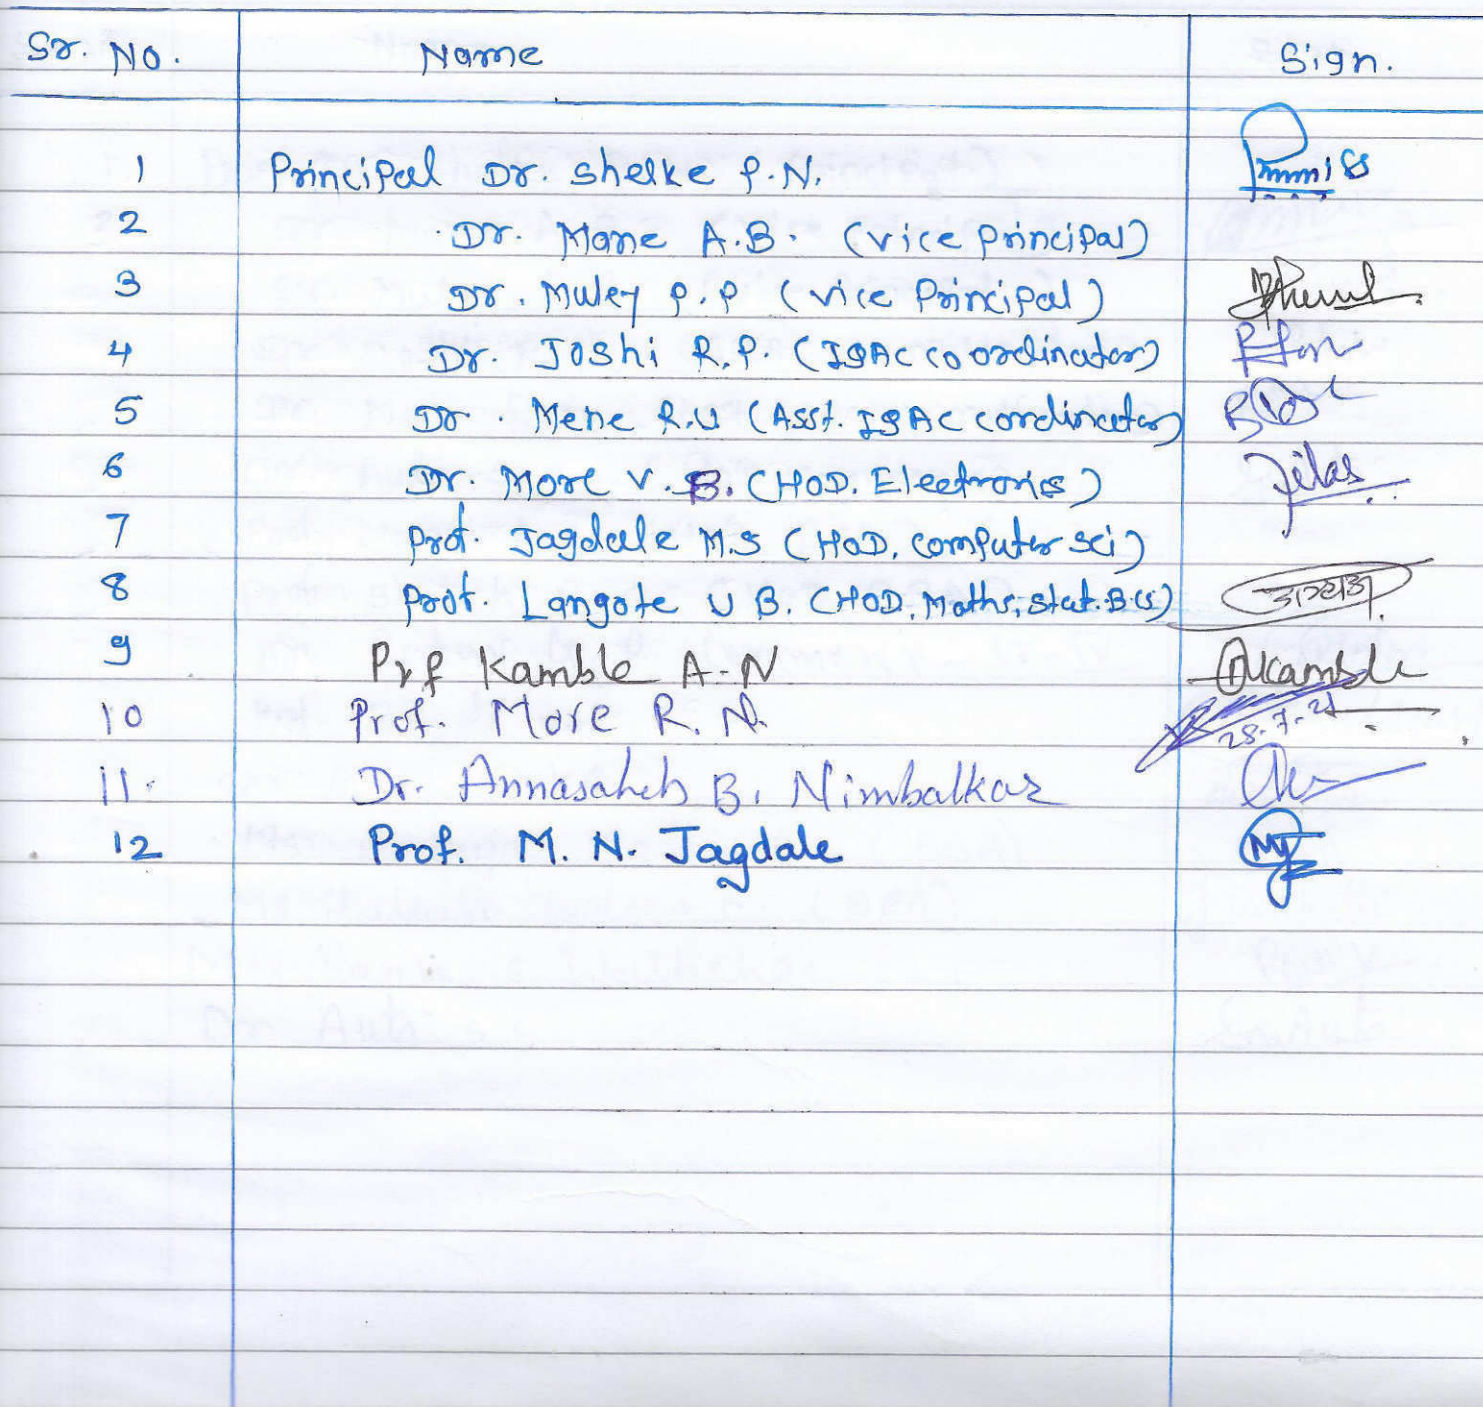 Sr. No. Name Sign.
1 Principal Dr. Shelke P.N.
2 Dr. Mane A.B. (Vice Principal)
3 Dr. Muley P.P (Vice Principal)
4 Dr. Joshi R.P. (IQAC Coordinator)
5 Dr. Mene R.U (Asst. IQAC Cordinator)
6 Dr. More V. B. (HOD. Electronics)
7 Prof. Jagdale M.S (HOD. Computer Sci)
8 Prof. Langote U B. (HOD, Maths, Stat. B.CS)
9 Prf Kamble A-N Kamble
10 Prof. More R. N. 28.7.21
11. Dr. Annasaheb B. Nimbalkar
12 Prof. M. N. Jagdale